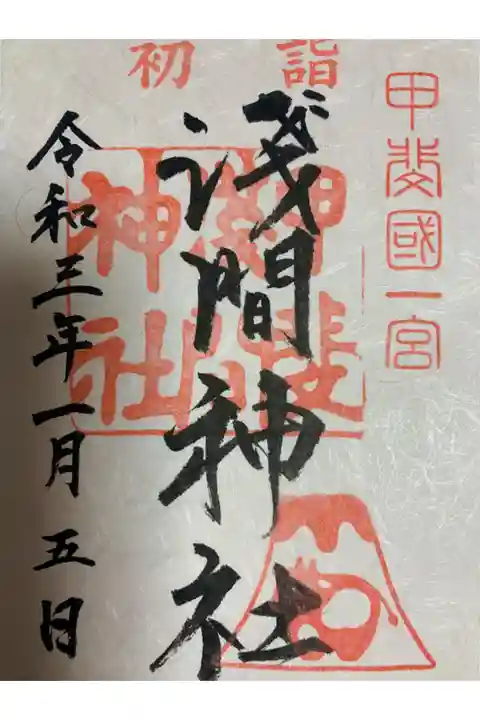 初詣
甲斐國一宮
淺間神社
令和三年一月五日
甲斐
神社